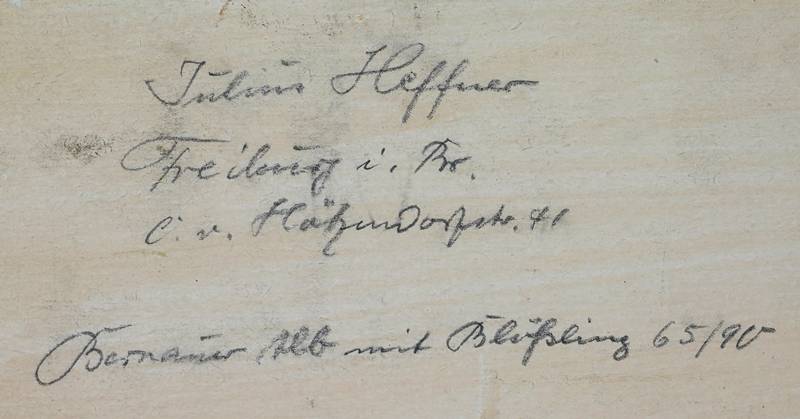 Julius Heffner
Freiburg i. Br.
C. v. Hötzendorfstr. 41
Bernauer Alb mit Blößling 65/90